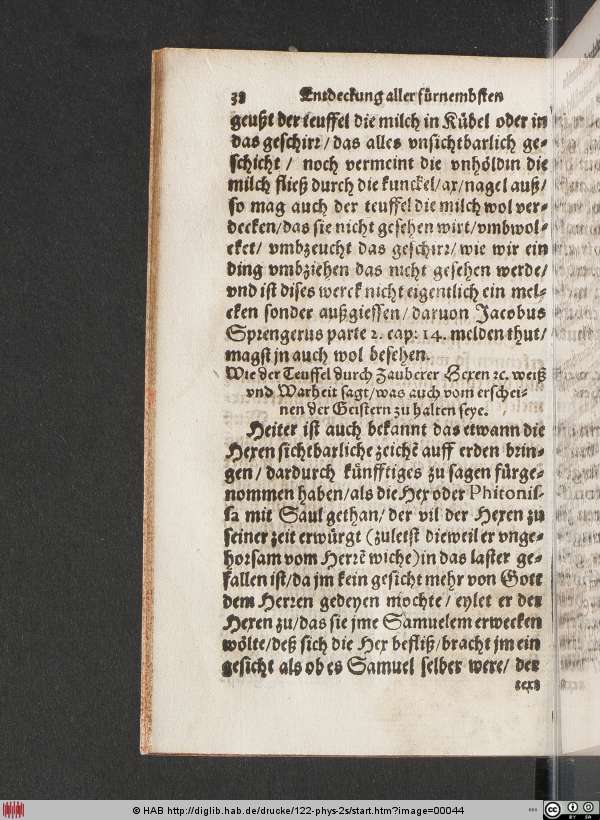 38 Entdeckung aller fürnembsten
geußt der teuffel die milch in Kübel oder in
das geschirr/das alles vnsichtbarlich ge-
schicht / noch vermeint die vnhöldin die
milch fließ durch die kunckel/ax/nagel auß/
so mag auch der teuffel die milch wol ver-
decken/das sie nicht gesehen wirt/vmbwol-
cket/ vmbzeucht das geschirr/wie wir ein
ding vmbziehen das nicht gesehen werde/
vnd ist dises werck nicht eigentlich ein mel-
cken sonder außgiessen/daruon Jacobus
Sprengerus parte 2. cap: 14. melden thut/
magst jn auch wol besehen.
Wie der Teuffel durch Zauberer Hexen ꝛc. weiß
vnd Warheit sagt/was auch vom erschei-
nen der Geistern zu halten seye.
Heiter ist auch bekannt das etwann die
Hexen sichtbarliche zeichẽ auff erden brin-
gen/ dardurch künfftiges zu sagen fürge-
nommen haben/als die Hex oder Phitonis-
sa mit Saul gethan/der vil der Hexen zu
seiner zeit erwürgt (zuletst dieweil er vnge-
horsam vom Herrẽ wiche)in das laster ge-
fallen ist/da jm kein gesicht mehr von Gott
dem Herren gedeyen mochte/ eylet er der
Hexen zu/das sie jme Samuelem erwecken
wölte/deß sich die Hex befliß/bracht jm ein
gesicht als ob es Samuel selber were/ der
text
© HAB http://diglib.hab.de/drucke/122-phys-2s/start.htm?image=00044